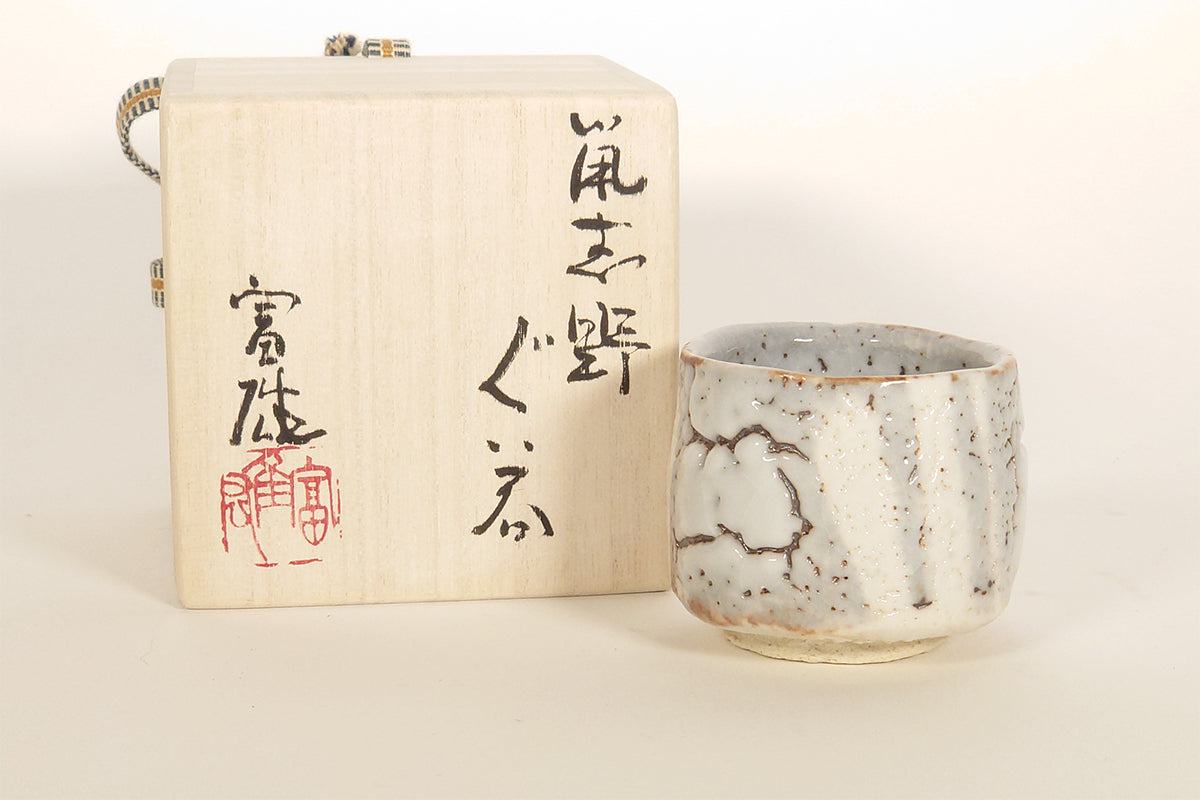 鼡志野
ぐい呑
富雄